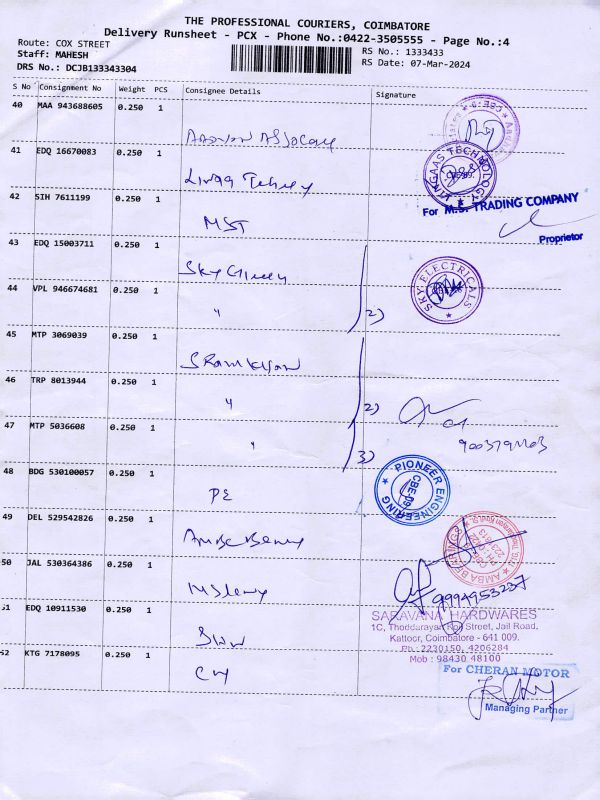 THE PROFESSIONAL COURIERS, COIMBATORE
Delivery Runsheet - PCX - Phone No.:0422-3505555 - Page No.:4
Route: COX STREET
Staff: MAHESH
DRS No.: DCJB133343304
RS No.: 1333433
RS Date: 07-Mar-2024
S No Consignment No Weight PCS Consignee Details Signature
40 MAA 943688605 0.250 1
41 EDQ 16670083 0.250 1
LINGAAS TECHNOLOGY
42 SIH 7611199 0.250 1
MST
For M.S. TRADING COMPANY
Proprietor
43 EDQ 15003711 0.250 1
SKY ELECTRICALS
44 VPL 946674681 0.250 1
" 2)
45 MTP 3069039 0.250 1
46 TRP 8013944 0.250 1
" 2)
47 MTP 5036608 0.250 1
" 3)
48 BDG 530100057 0.250 1
PE
PIONEER ENGINEERING
49 DEL 529542826 0.250 1
AMBA BEARINGS
50 JAL 530364386 0.250 1
9994953237
51 EDQ 10911530 0.250 1
SARAVANA HARDWARES
1C, Thoddarayan Kovil Street, Jail Road,
Kattoor, Coimbatore - 641 009.
Ph : 2230150, 4206284
Mob : 98430 48100
52 KTG 7178095 0.250 1
For CHERAN MOTOR
Managing Partner